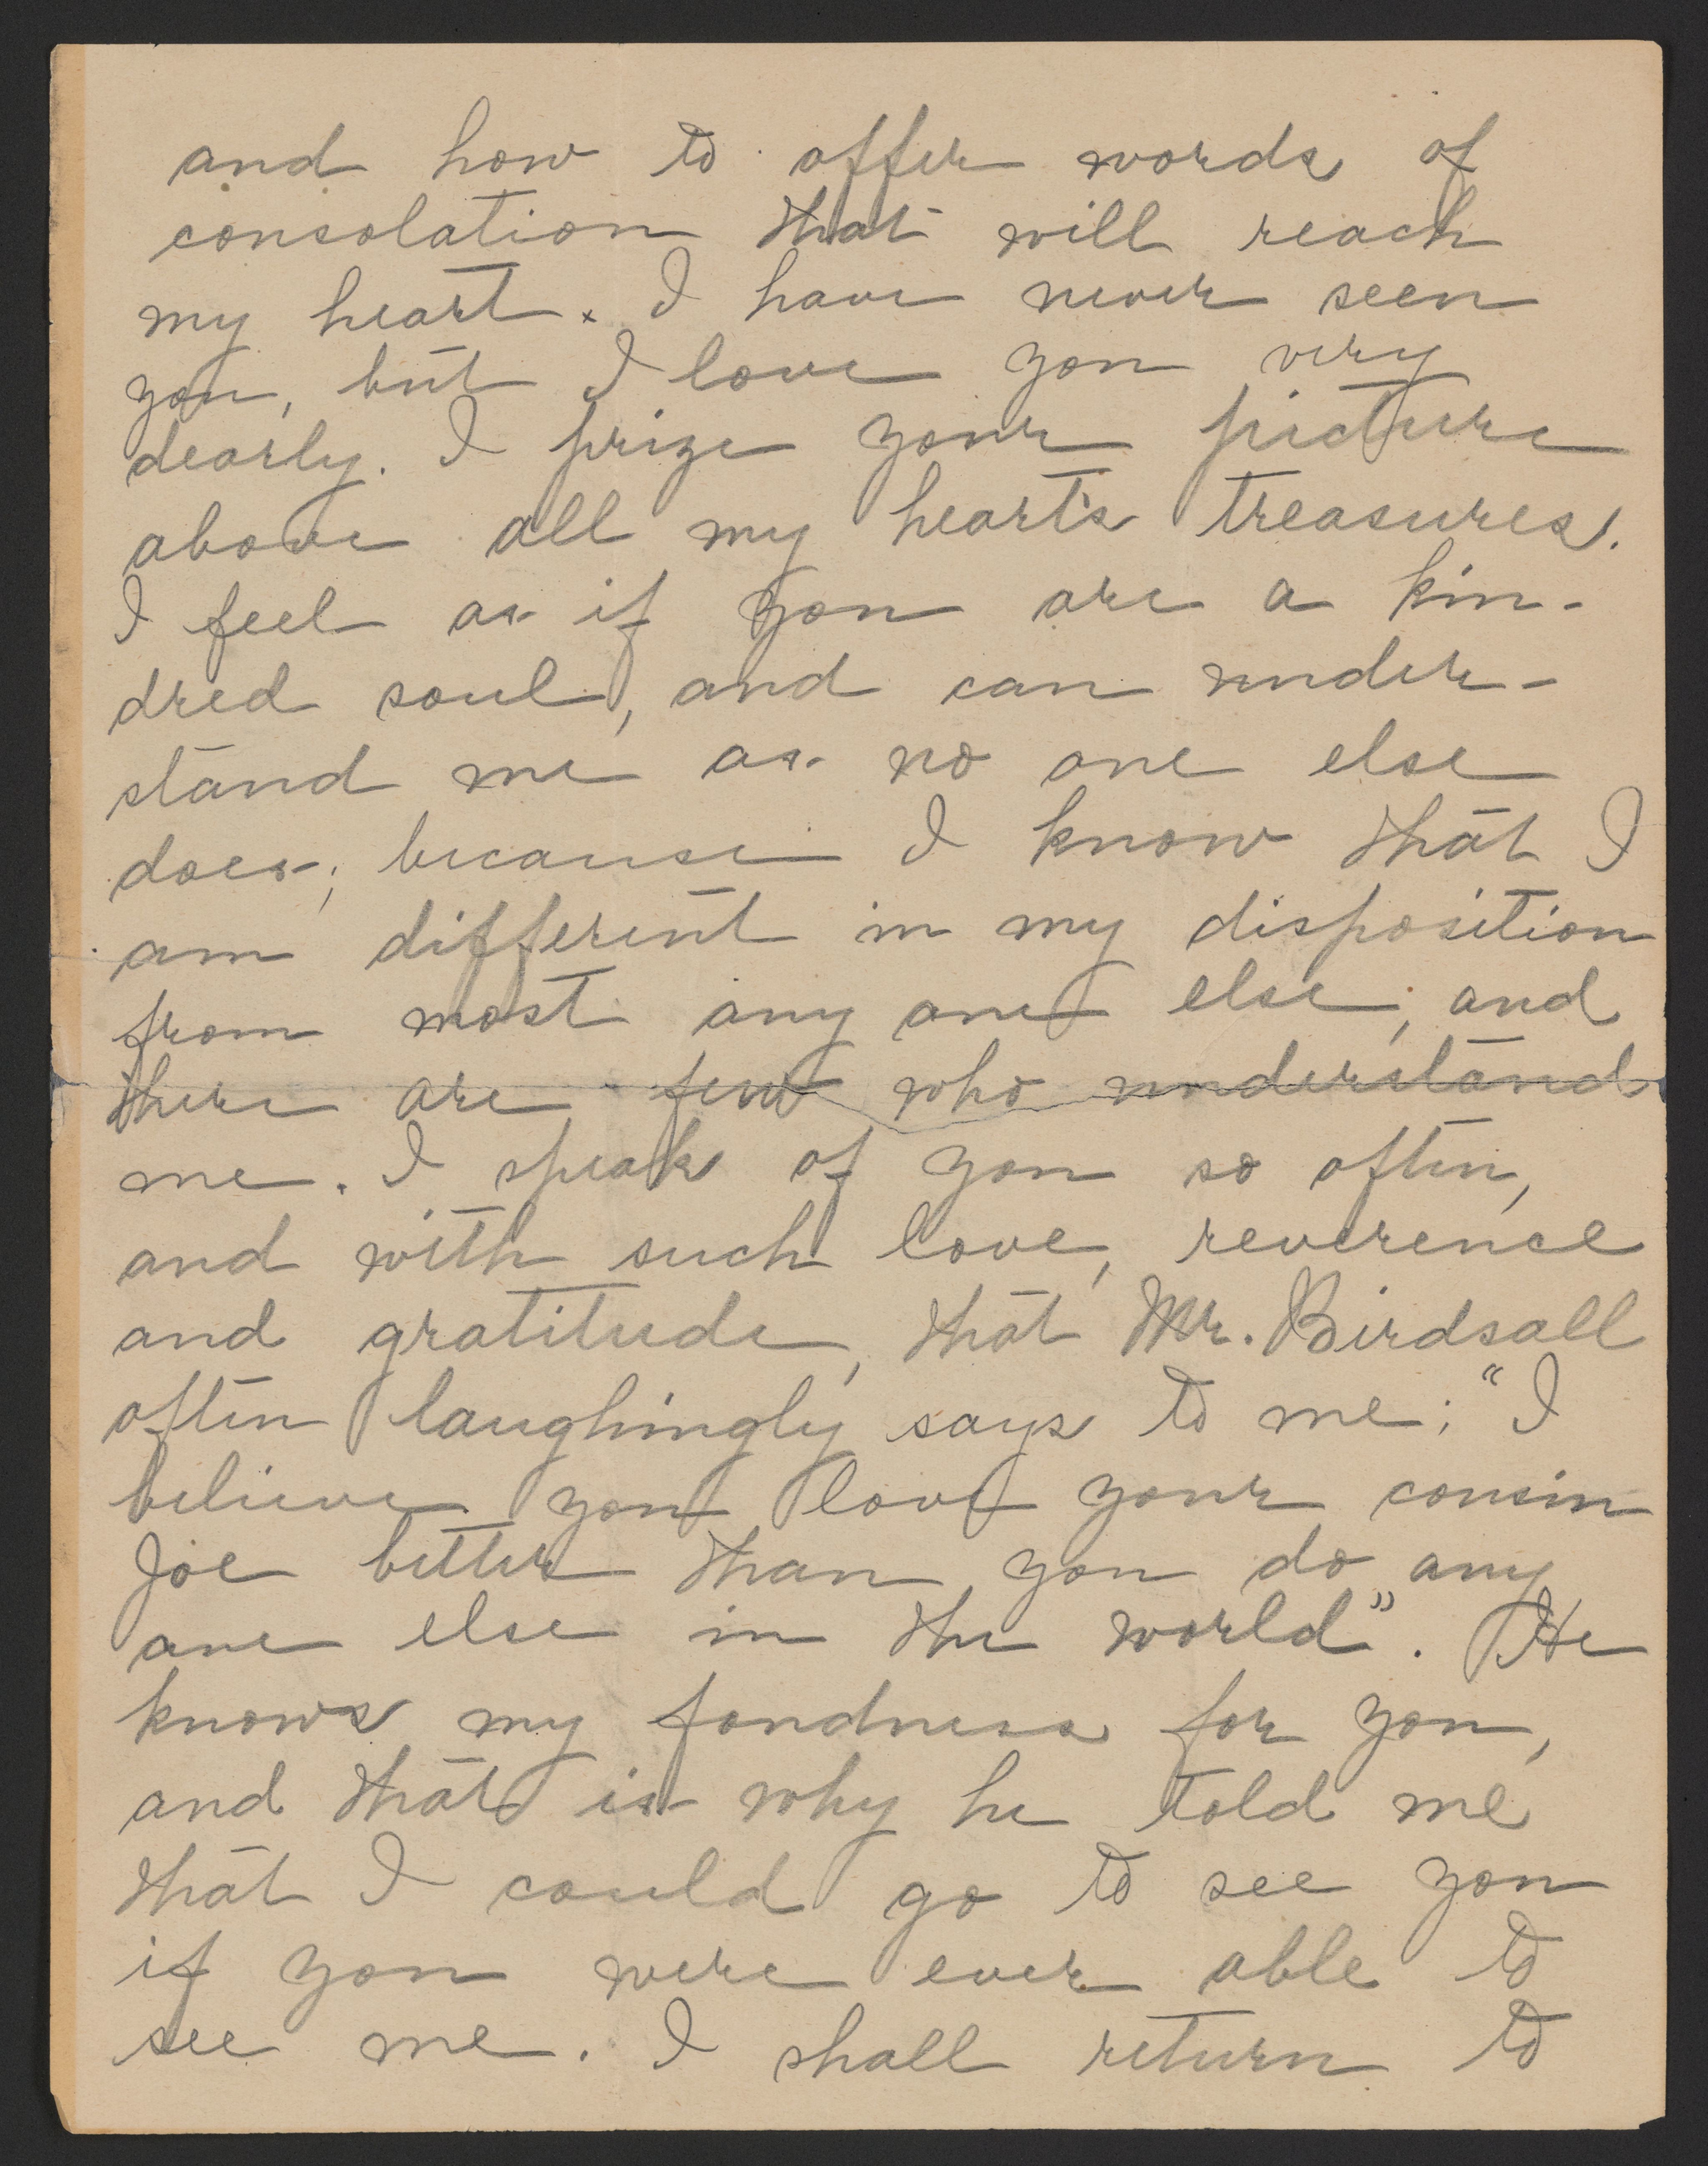 and how to offer words of
consolation that will reach
my heart. I have never seen
you, but I love you very
dearly. I prize your picture
above all my heart's treasures.
I feel as if you are a kin-
dred soul, and can under-
stand me as no one else
does; because I know that I
am different in my disposition
from most any one else; and
there are few who understand
me. I speak of you so often,
and with such love, reverence
and gratitude, that Mr. Birdsall
often laughingly says to me; "I
believe you love your cousin
Joe better than you do any
one else in the world". He
knows my fondness for you,
and that is why he told me
that I could go to see you
if you were ever able to
see me. I shall return to